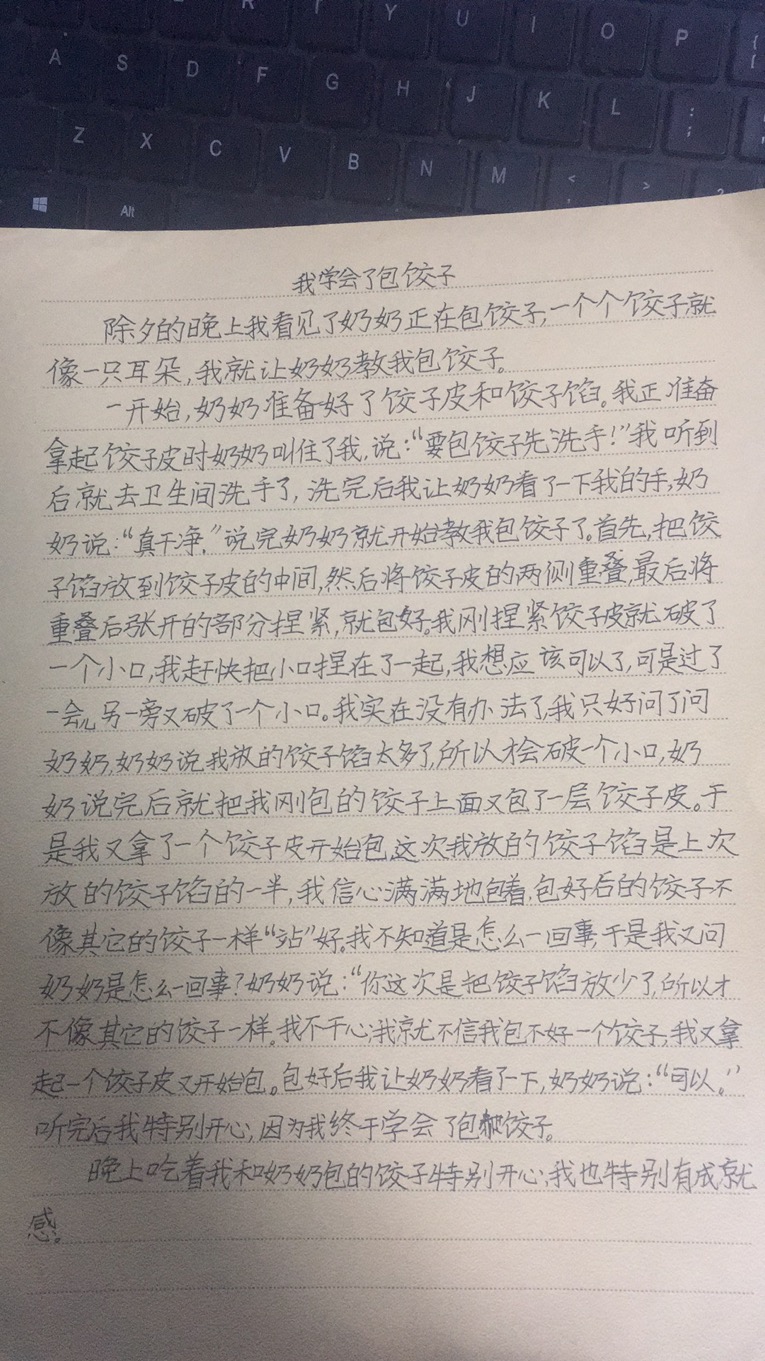 R Y U I O P {
[
A S D F G H J K L : ;
Z X C V B N M < > ?
Alt
我学会了包饺子
除夕的晚上我看见了奶奶正在包饺子,一个个饺子就
像一只耳朵,我就让奶奶教我包饺子。
一开始,奶奶准备好了饺子皮和饺子馅。我正准备
拿起饺子皮时奶奶叫住了我,说:“要包饺子先洗手!”我听到
后,就去卫生间洗手了,洗完后我让奶奶看了一下我的手,奶
奶说:“真干净。”说完奶奶就开始教我包饺子了。首先,把饺
子馅放到饺子皮的中间,然后将饺子皮的两侧重叠,最后将
重叠后张开的部分捏紧,就包好。我刚捏紧饺子皮就破了
一个小口,我赶快把小口捏在了一起,我想应该可以了,可是过了
一会儿另一旁又破了一个小口。我实在没有办法了,我只好问了问
奶奶,奶奶说我放的饺子馅太多了,所以才会破一个小口,奶
奶说完后就把我刚包的饺子上面又包了一层饺子皮。于
是我又拿了一个饺子皮开始包,这次我放的饺子馅是上次
放的饺子馅的一半,我信心满满地包着,包好后的饺子不
像其它的饺子一样“站”好。我不知道是怎么一回事,于是我又问
奶奶是怎么一回事?奶奶说:“你这次是把饺子馅放少了,所以才
不像其它的饺子一样。我不干心,我就不信我包不好一个饺子,我又拿
起一个饺子皮又开始包。包好后我让奶奶看了一下,奶奶说:“可以。”
听完后我特别开心,因为我终于学会了包饺子。
晚上吃着我和奶奶包的饺子特别开心,我也特别有成就
感。